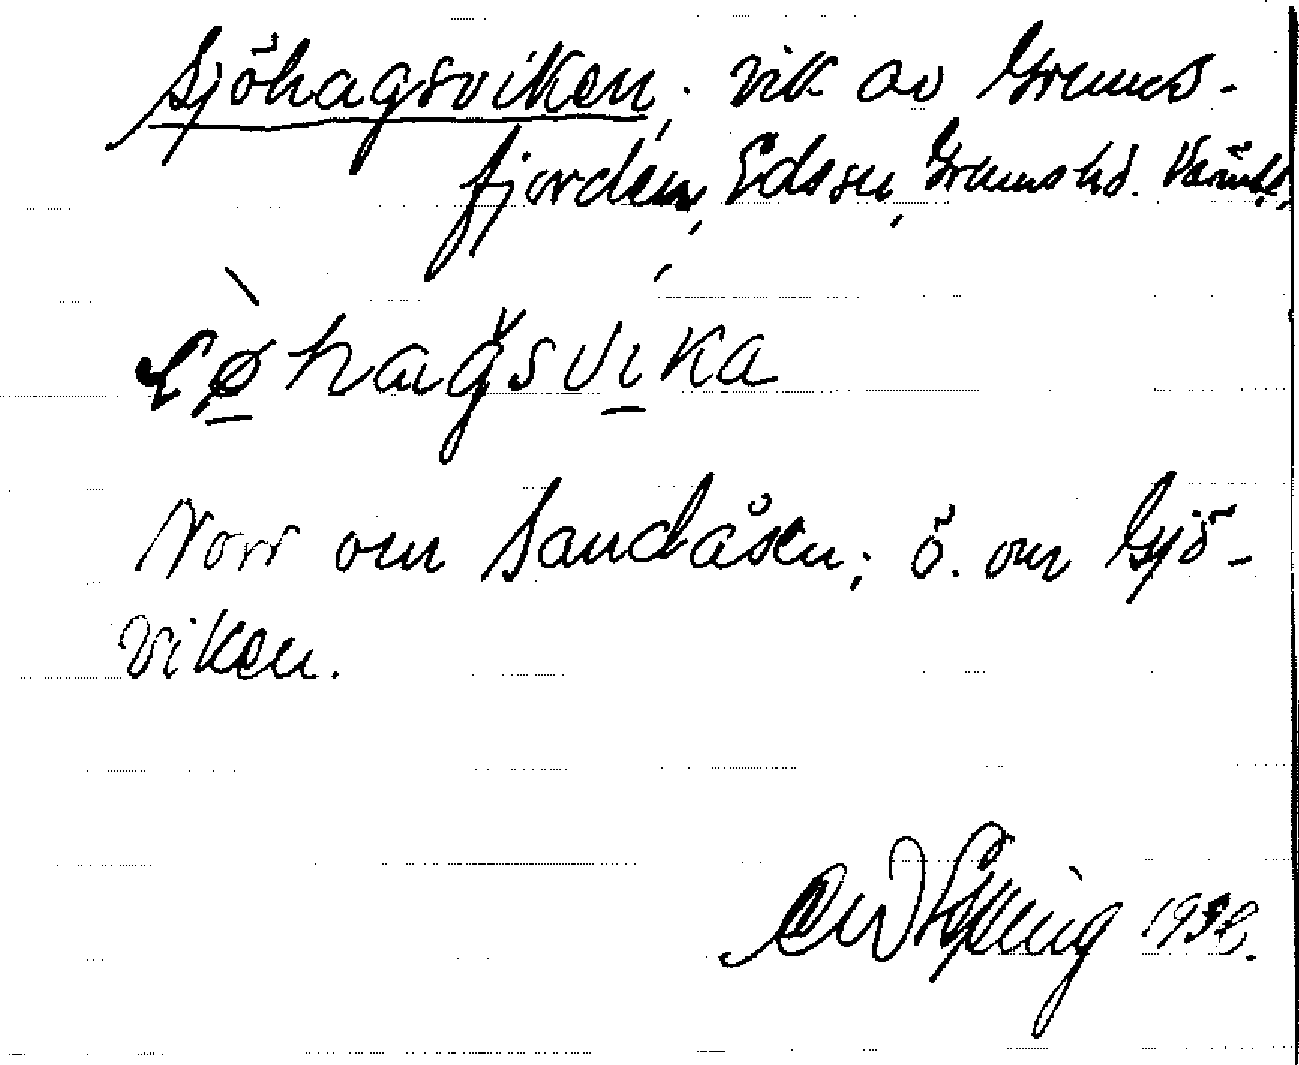 Sjöhagsviken, vik av Grums-
fjorden, Eds sn, Grums hd. Värml.
Norr om Sandåsen; ö. om Sjö-
viken.